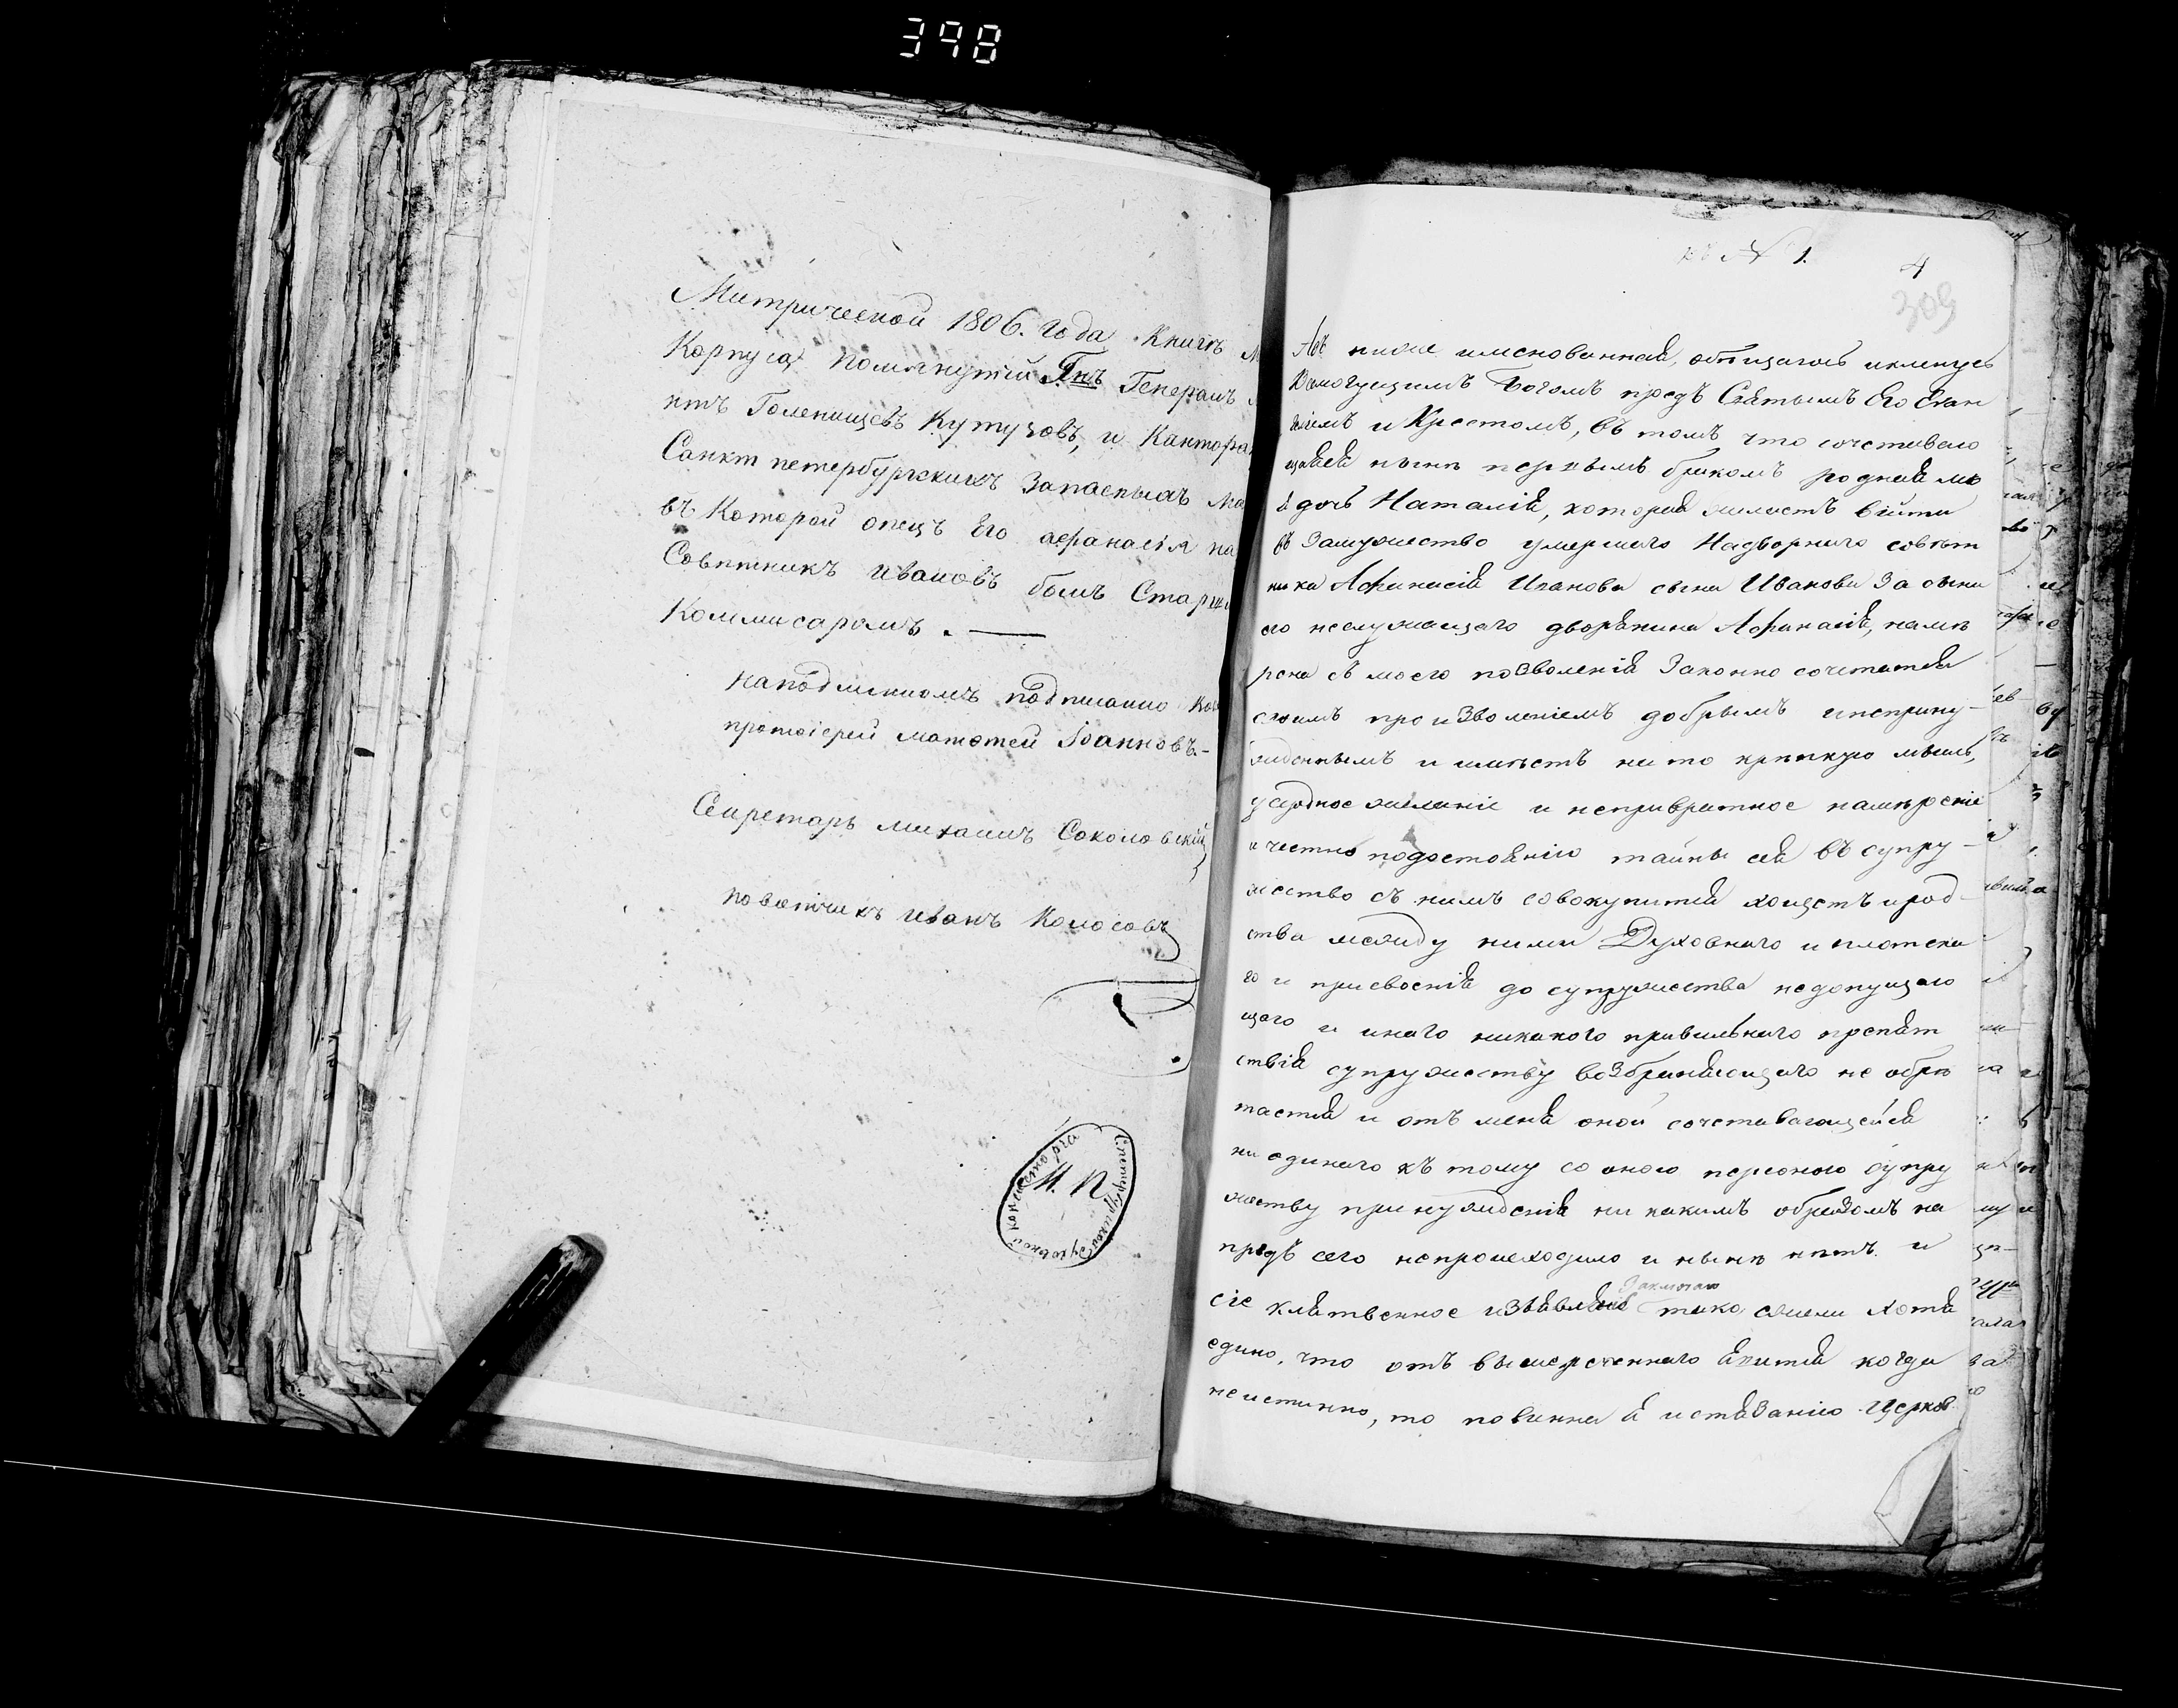 398
Митрической 1806. года книгѣ
Корпуса помянутый Гнъ Генералъ
нтъ Голенищевъ Кутузовъ, и Кантора
Санктпетербургскихъ Запасныхъ Ма
въ которой отецъ Его афанасія на
Совѣтникъ ивановъ былъ Старши
Коммисаромъ. —
наподлинномъ подписано
протоіерей матѳей Іоанновъ. –
Секретарь михаилъ Соколовскій
повытчикъ иванъ Колосовъ
М. П.
Спетербургской духовной консисторіи
къ № 1.
4
309
Азъ ниже имянованная, обѣщаюсь и кленусь
Всемогущимъ Богомъ предъ Святымъ Его Еван
геліемъ и Крестомъ, въ томъ что сочетаваю
щаяся нынѣ первымъ бракомъ родная мо
я дочь Наталія, которая желаетъ вытти
въ Замужество умершаго Надворнаго совѣт
ника Афанасія Иванова сына Иванова За сына
его неслужащаго дворянина Афанасія, намѣ
рена съ моего позволенія Законно сочетатся
своимъ произволеніемъ добрымъ инеприну–
жденнымъ и имѣетъ на то крѣпкую мысль,
усердное желаніе и непривратное намѣреніе
и честно подостоянію тайны сея въ супру–
жество съ нимъ совокупитися хощетъ и род–
ства между ними Духовнаго и плотска
го и присвоенія до супружества недопущаю
щаго и инаго никакого правильнаго препят
ствія супружеству возбраняющаго не обрѣ
тается и отъ меня оной сочетавающейся
ни единаго къ тому со оною персоною супру
жеству принужденія ни какимъ образомъ на
предъ сего непроисходило и нынѣ нѣтъ. и
Заключаю
сіе клятвенное извявляю тако ежели хотя
едино, что отъ вышереченнаго явится когда
неистинно, то повинна я истязанію Церков